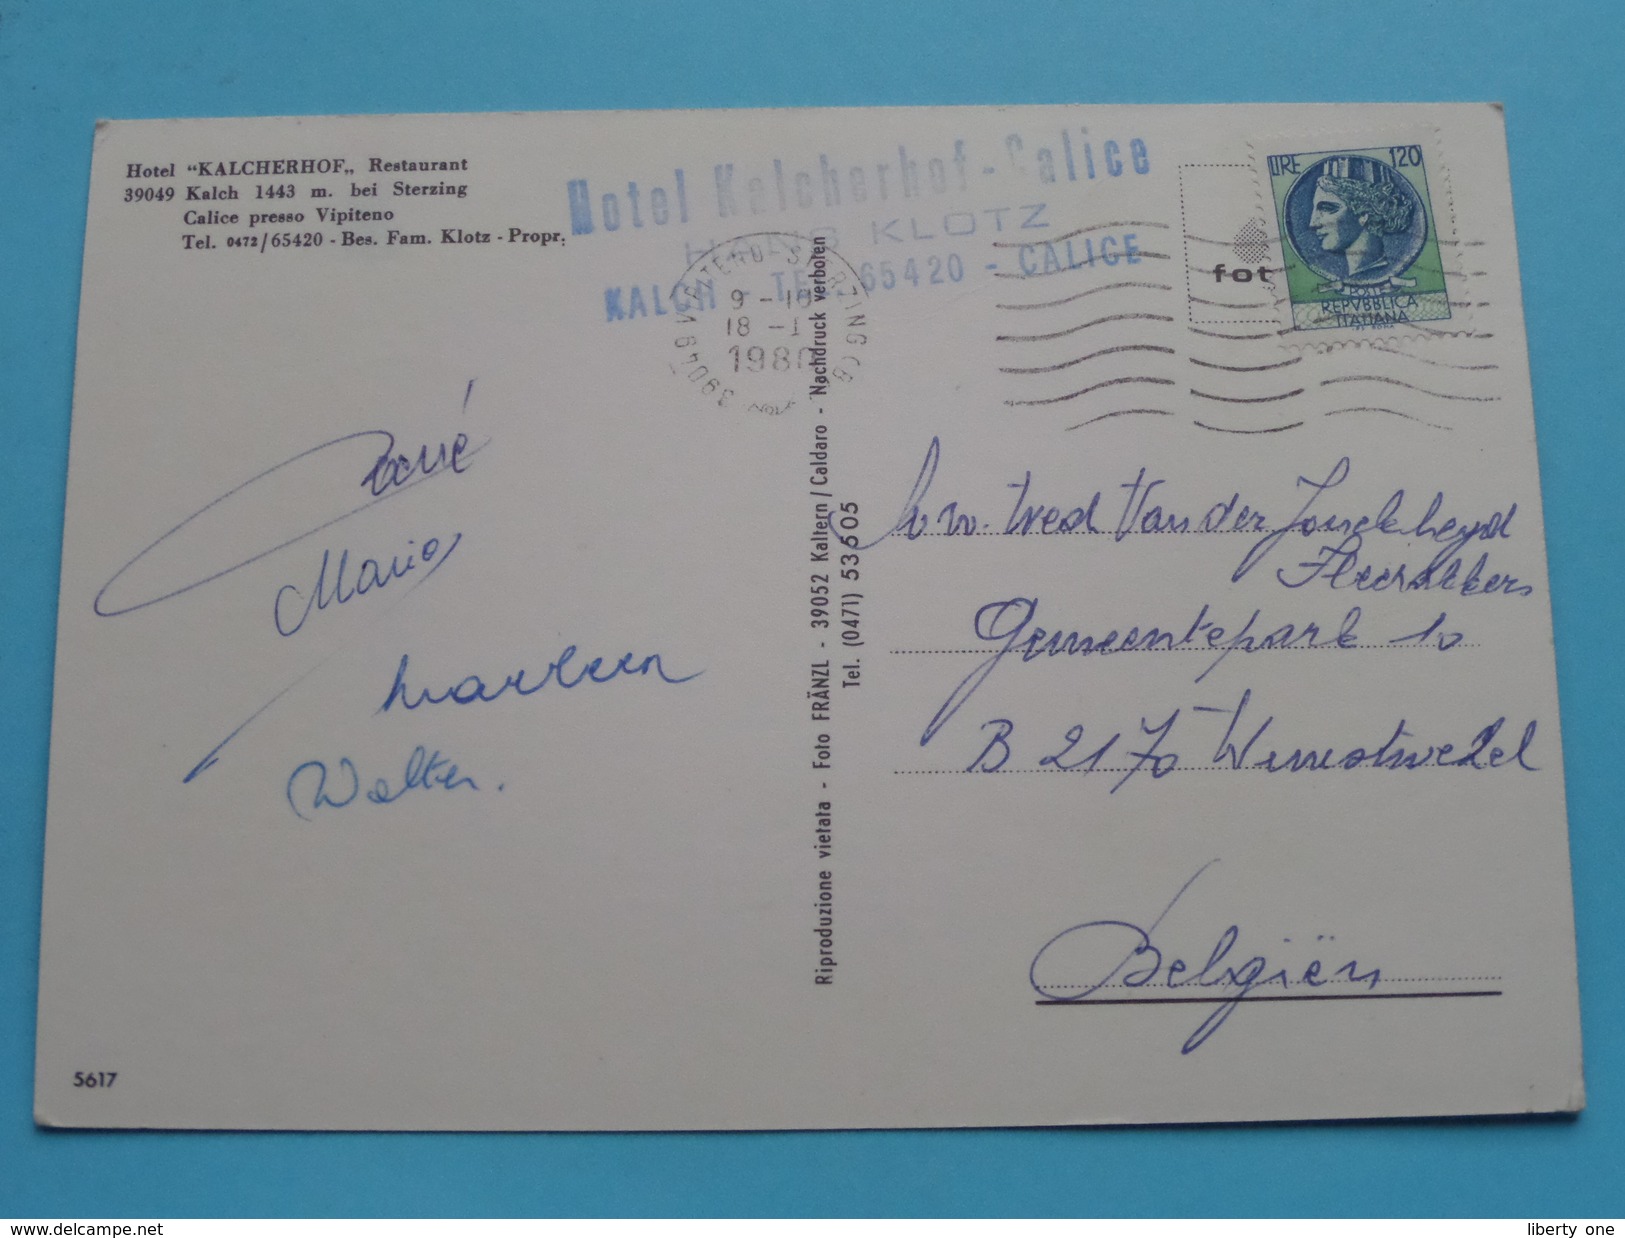 Hotel “KALCHERHOF„ Restaurant
39049 Kalch 1443 m. bei Sterzing
Calice presso Vipiteno
Tel. 0472/65420 - Bes. Fam. Klotz - Propr.
Hotel Kalcherhof - Calice
HANS KLOTZ
KALCH - TEL. 65420 - CALICE
39049 VIPITENO STERZING (B
9 - 10
18 - 1
1980
fot
LIRE 120
POSTE
REPVBBLICA
ITALIANA
Maria
Marleen
Walter.
Riproduzione vietata - Foto FRÄNZL - 39052 Kaltern / Caldaro - Nachdruck verboten
Tel. (0471) 53505
Wed Van der Jonckheyd
Gemeentepark 10
B 2170 Wuustwezel
Belgiën
5617
liberty one